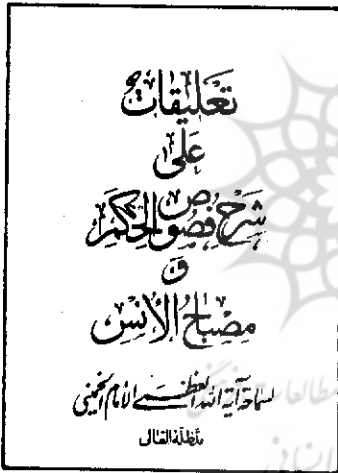 تعليقات
على
شرح فصوص الحكم
و
مصباح الأنس
لسماحة آية الله العظمى الامام الخميني
مد ظله العالى